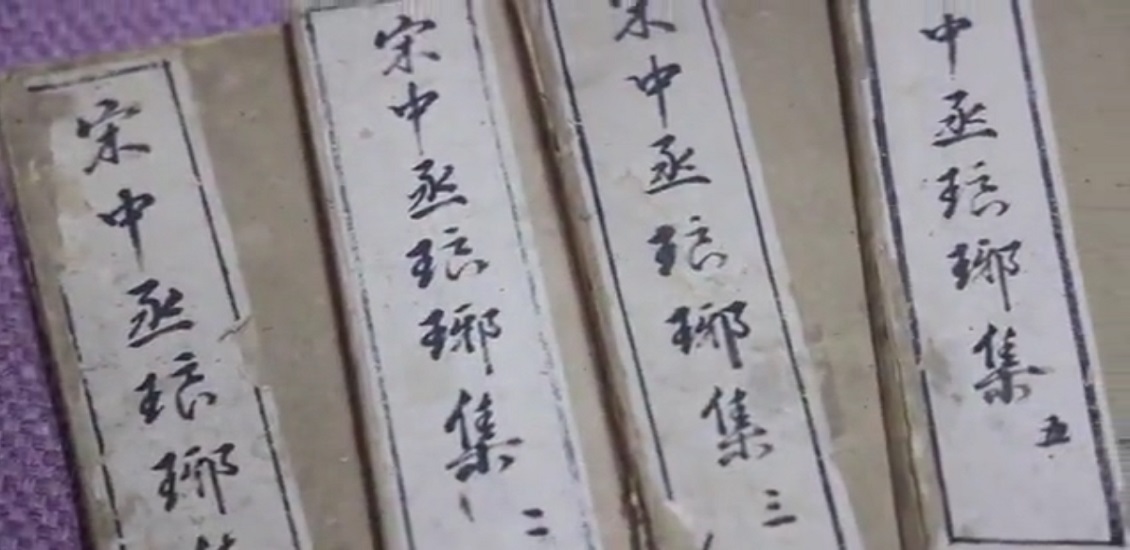 宋中丞琅琊
宋中丞琅琊集 二
宋中丞琅琊集 三
中丞琅琊集 五